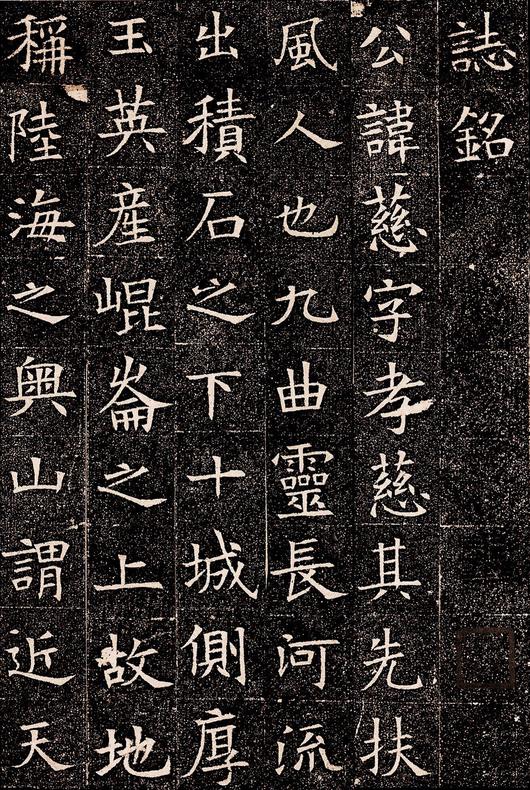 誌銘
公諱慈字孝慈其先扶
風人也九曲靈長河流
出積石之下十城側厚
玉英産崐崙之上故地
稱陸海之奥山謂近天